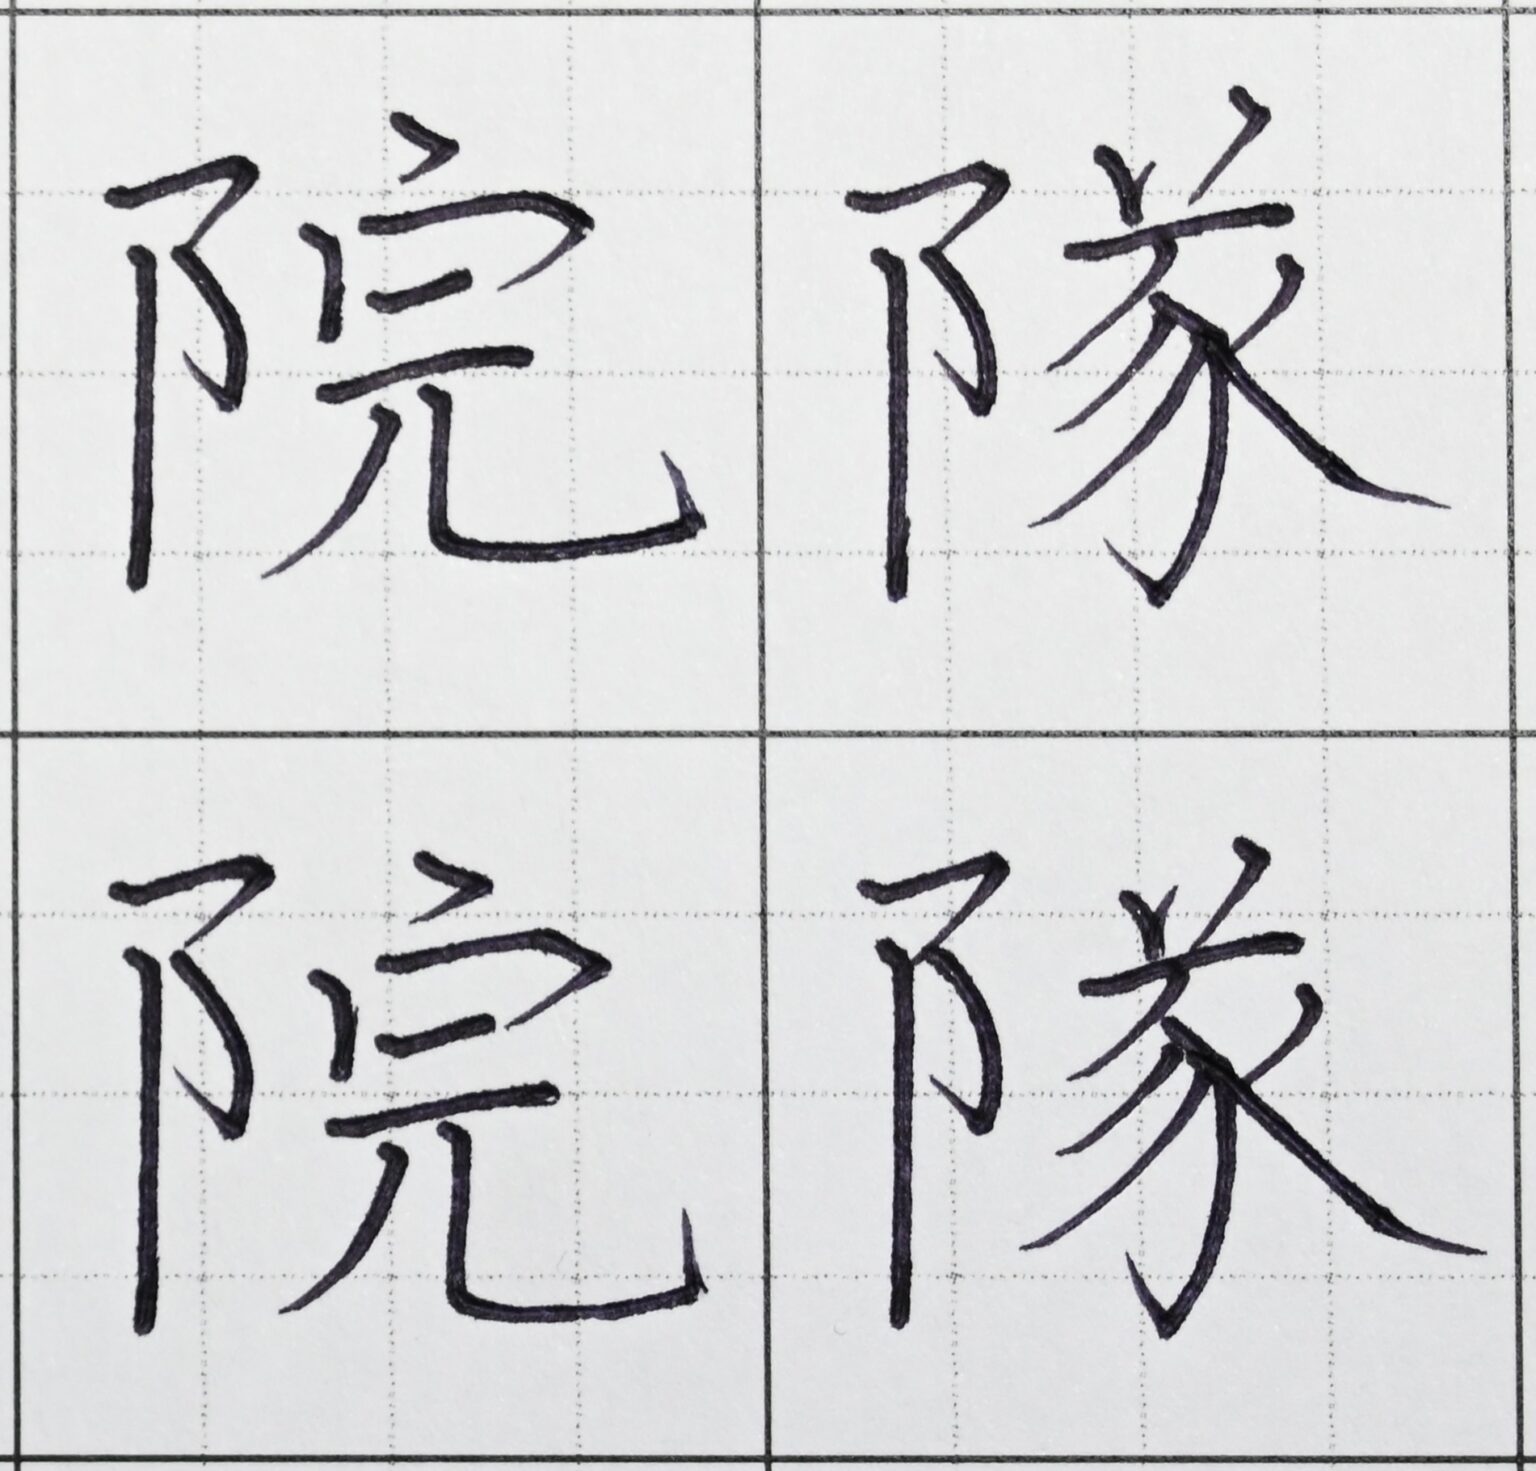 院隊
院隊